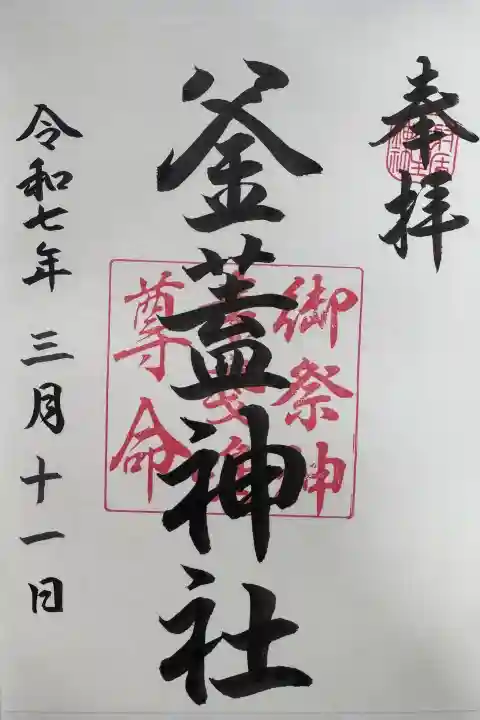 奉拝
釜蓋神社
御祭神
尊命
令和七年 三月十一日